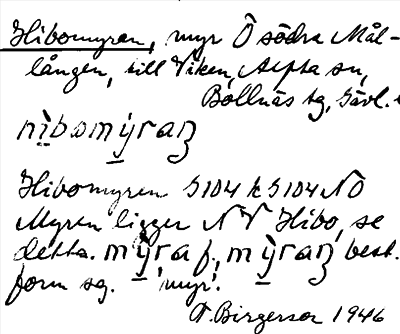 Hibomyren, myr Ö södra Mål-
lången, till Viken, Alfta sn,
Bollnäs tg, Gävl.
Hibomyren S104 k S104 NO
Myren ligger NV Hibo, se
detta. f., best.
form sg. 'myr'.
Birgersor 1946